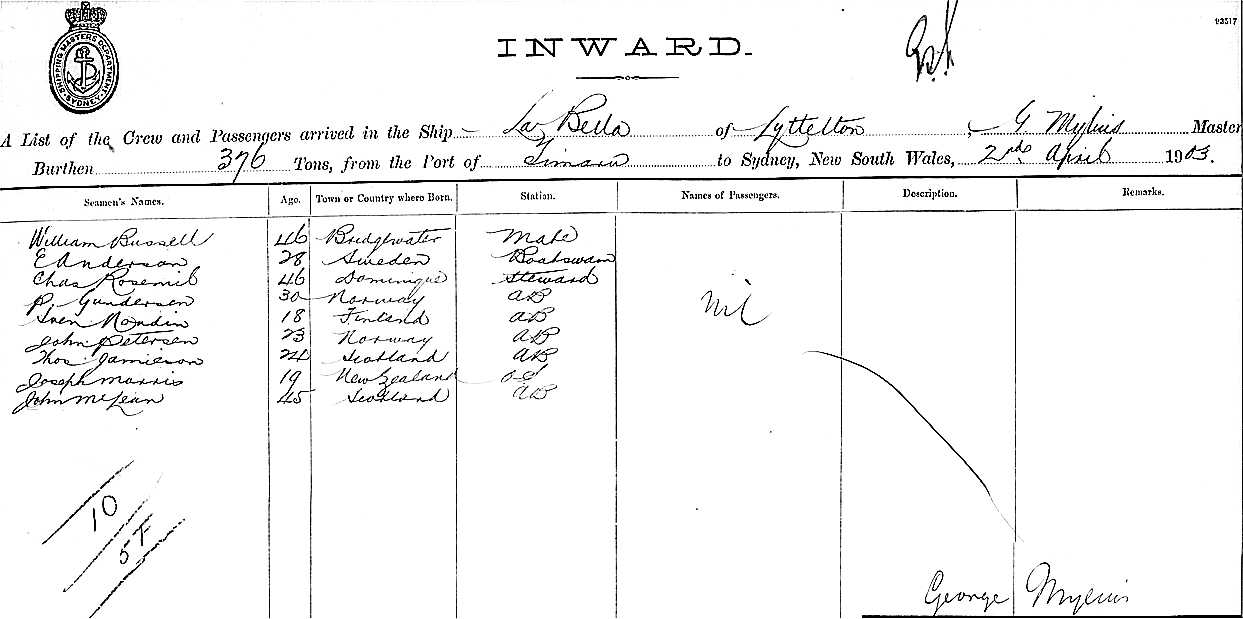 SHIPPING MASTERS DEPARTMENT SYDNEY
INWARD.
93517
A List of the Crew and Passengers arrived in the Ship La Bella of Lyttelton, G Mylius Master
Burthen 376 Tons, from the Port of Timaru to Sydney, New South Wales, 2nd April 1903.
Seamen's Names. Age. Town or Country where Born. Station. Names of Passengers. Description. Remarks.
William Bussell 46 Bridgwater Mate
E Anderson 28 Sweden Boatswain
Chas Rosemil 46 Dominique Steward
P. Gundersen 30 Norway AB
Nil
Sven 18 Finland AB
John Petersen 23 Norway AB
Thos Jamieson 24 Scotland AB
Joseph Morris 19 New Zealand OS
John McLean 45 Scotland AB
10
5 F
George Mylius